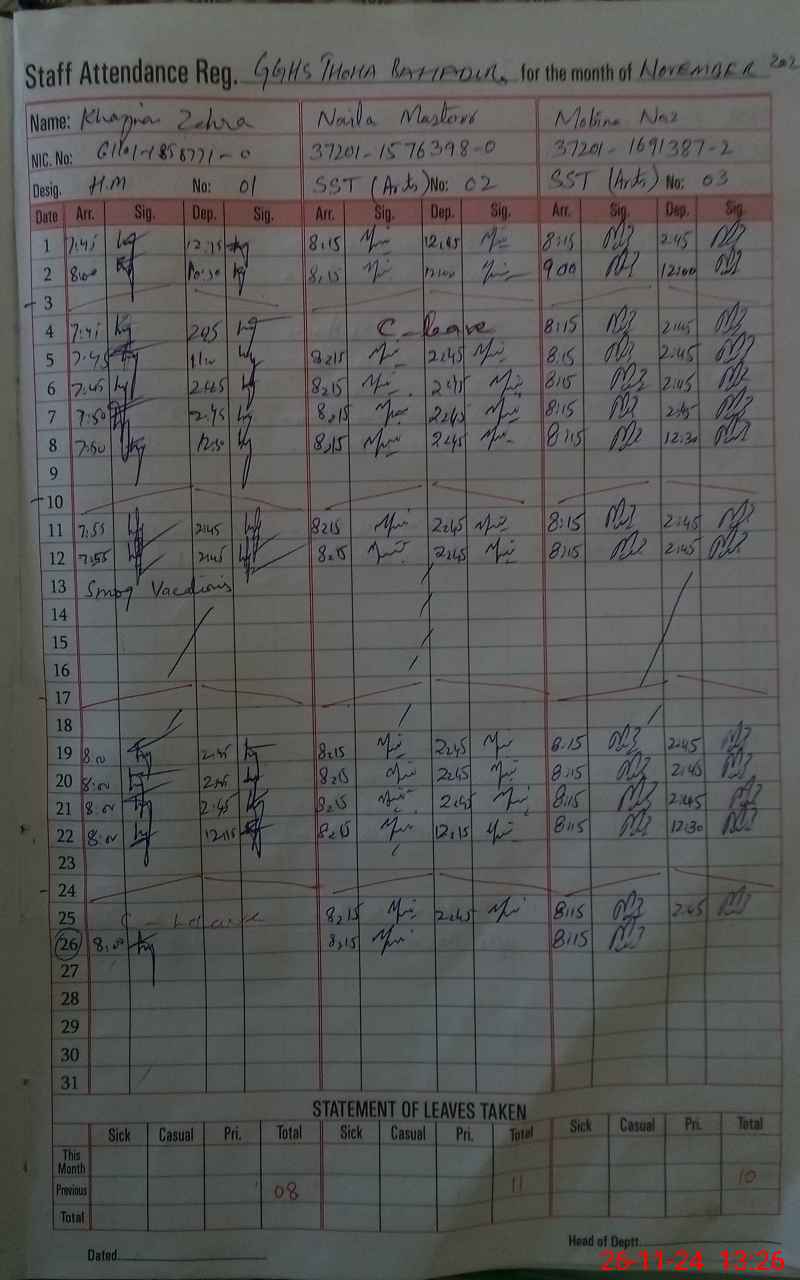 Staff Attendance Reg. GGHS THOHA BAHADUR. for the month of NOVEMBER 202
Name: Zehra Naila Mobina Naz
NIC. No: 37201-1576398-0 37201-1691387-2
Desig. H.M No: 01 SST (Arts) No: 02 SST (Arts) No: 03
Date Arr. Sig. Dep. Sig. Arr. Sig. Dep. Sig. Arr. Sig. Dep. Sig.
1 7:45 8:15 12:45 8:15 2:45
2 8:00 8:15 12:00 9:00 12:00
3
4 7:45 2:45 C-leave 8:15 2:45
5 7:45 8:15 2:45 8:15 2:45
6 7:45 2:45 8:15 2:45 8:15 2:45
7 7:50 2:45 8:15 2:45 8:15 2:45
8 7:50 12:30 8:15 2:45 8:15 12:30
9
10
11 7:55 2:45 8:15 2:45 8:15 2:45
12 7:55 2:45 8:15 2:45 8:15 2:45
13 Smog Vacations
14
15
16
17
18
19 8:00 2:45 8:15 2:45 8:15 2:45
20 8:00 2:45 8:15 2:45 8:15 2:45
21 8:00 2:45 8:15 2:45 8:15 2:45
22 8:00 12:15 8:15 12:15 8:15 12:30
23
24
25 C-Leave 8:15 2:45 8:15 2:45
26 8:00 8:15 8:15
27
28
29
30
31
STATEMENT OF LEAVES TAKEN
Sick Casual Pri. Total Sick Casual Pri. Total Sick Casual Pri. Total
This Month
Previous 08 11 10
Total
Dated Head of Deptt.
26-11-24 13:26